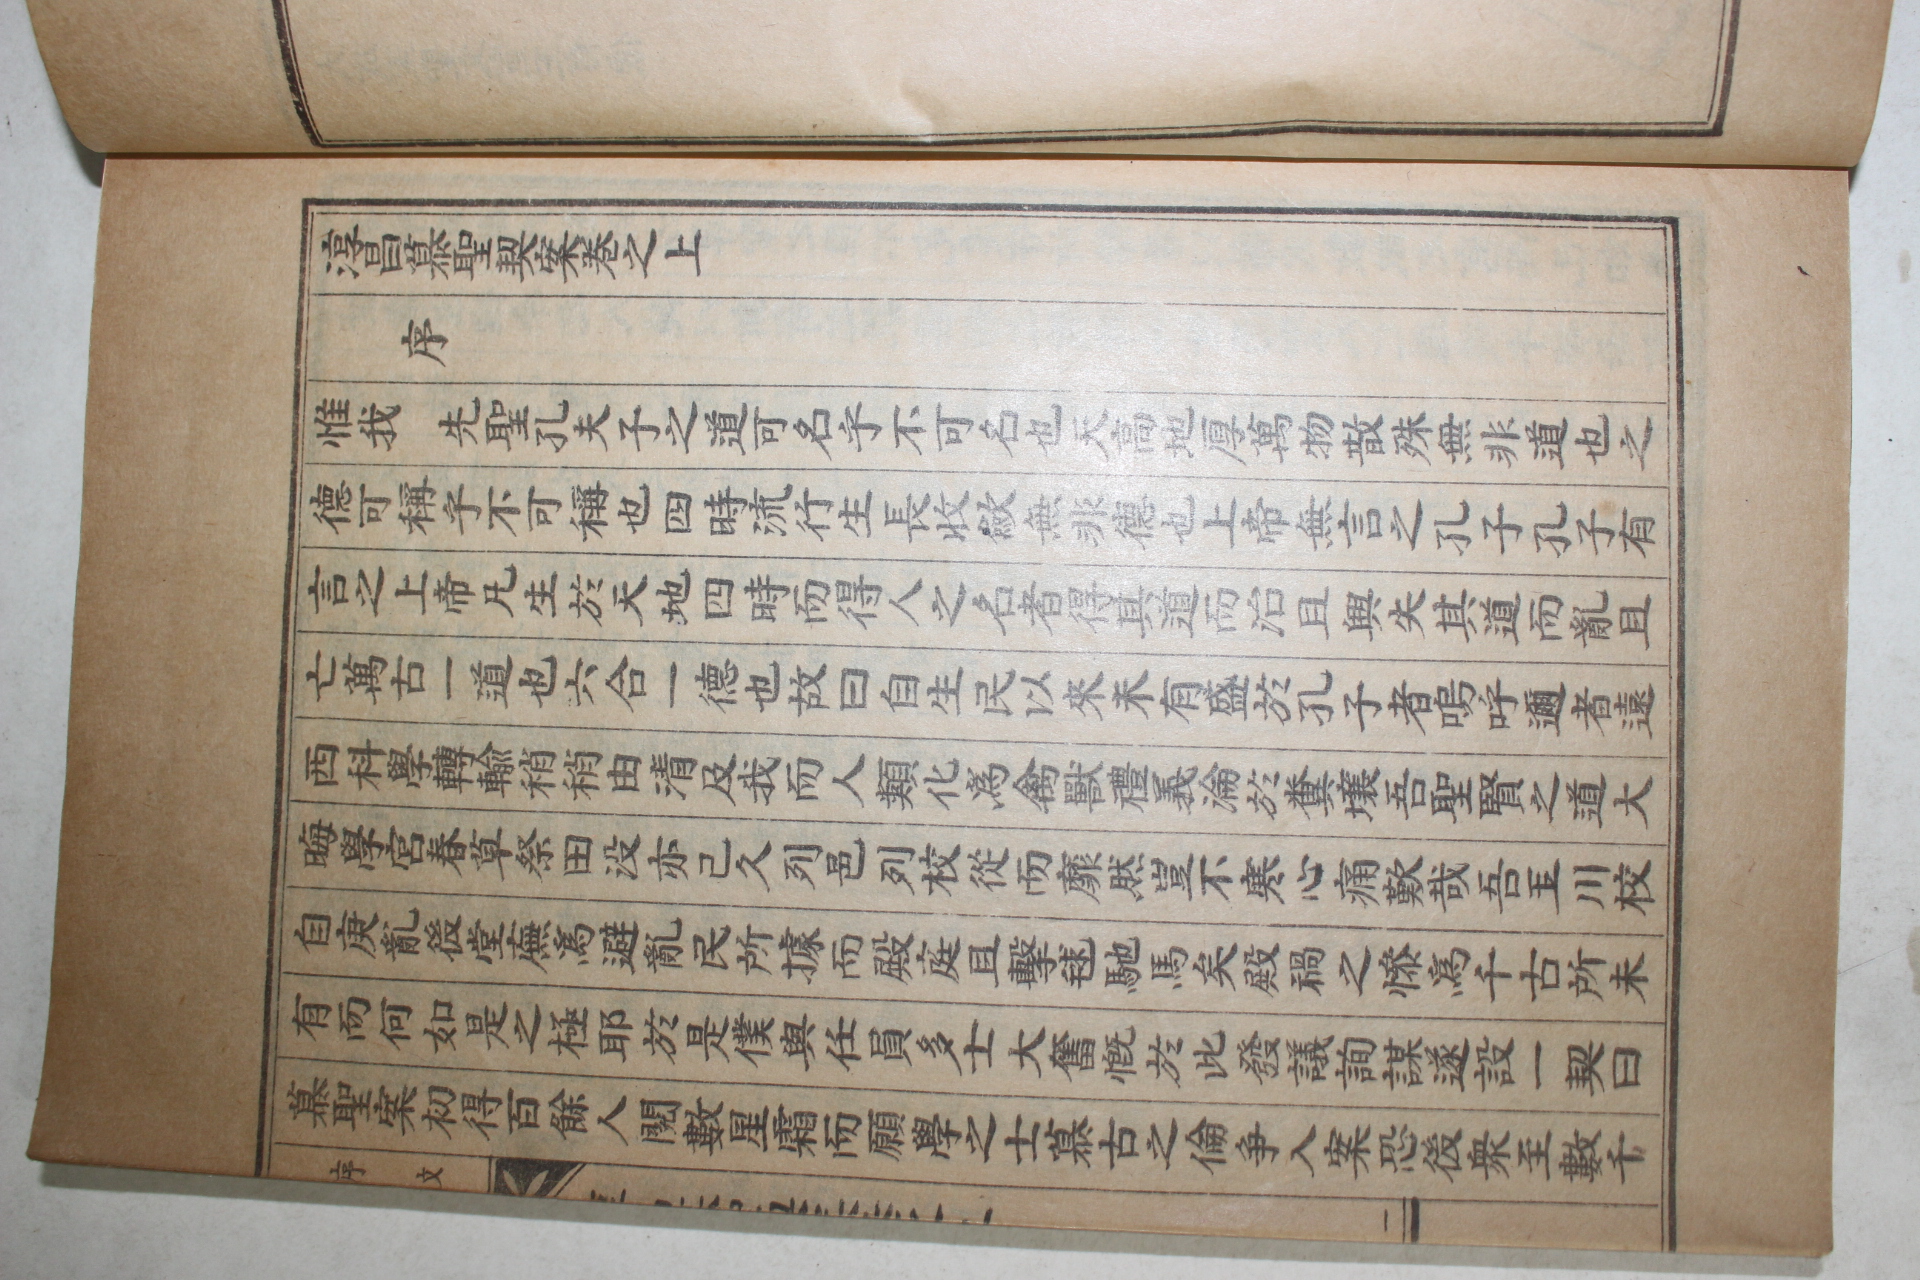 淳昌慕聖契案卷之上
序
惟我 先聖孔夫子之道可名乎不可名也天高地厚萬物散殊無非道也之
德可稱乎不可稱也四時流行生長收歛無非德也上帝無言之孔子孔子有
言之上帝凡生於天地四時而得人之名者得其道而治且興失其道而亂且
亡萬古一道也六合一德也故曰自生民以來未有盛於孔子者嗚呼邇者遠
西科學轉輸稍稍由淸及我而人類化爲禽獸禮義淪於糞壤吾聖賢之道大
晦學宮春草祭田沒亦已久列邑列校從而靡然豈不寒心痛歎哉吾玉川校
自庚亂後堂廡爲避亂民所據而殿庭且擊毬馳馬矣殿禍之慘爲千古所未
有而何如是之極耶於是僕與任員多士大奮慨於此發議詢謀遂設一契曰
慕聖案初得百餘人閱數星霜而願學之士慕古之倫爭入案恐後衆至數千
序 文
一